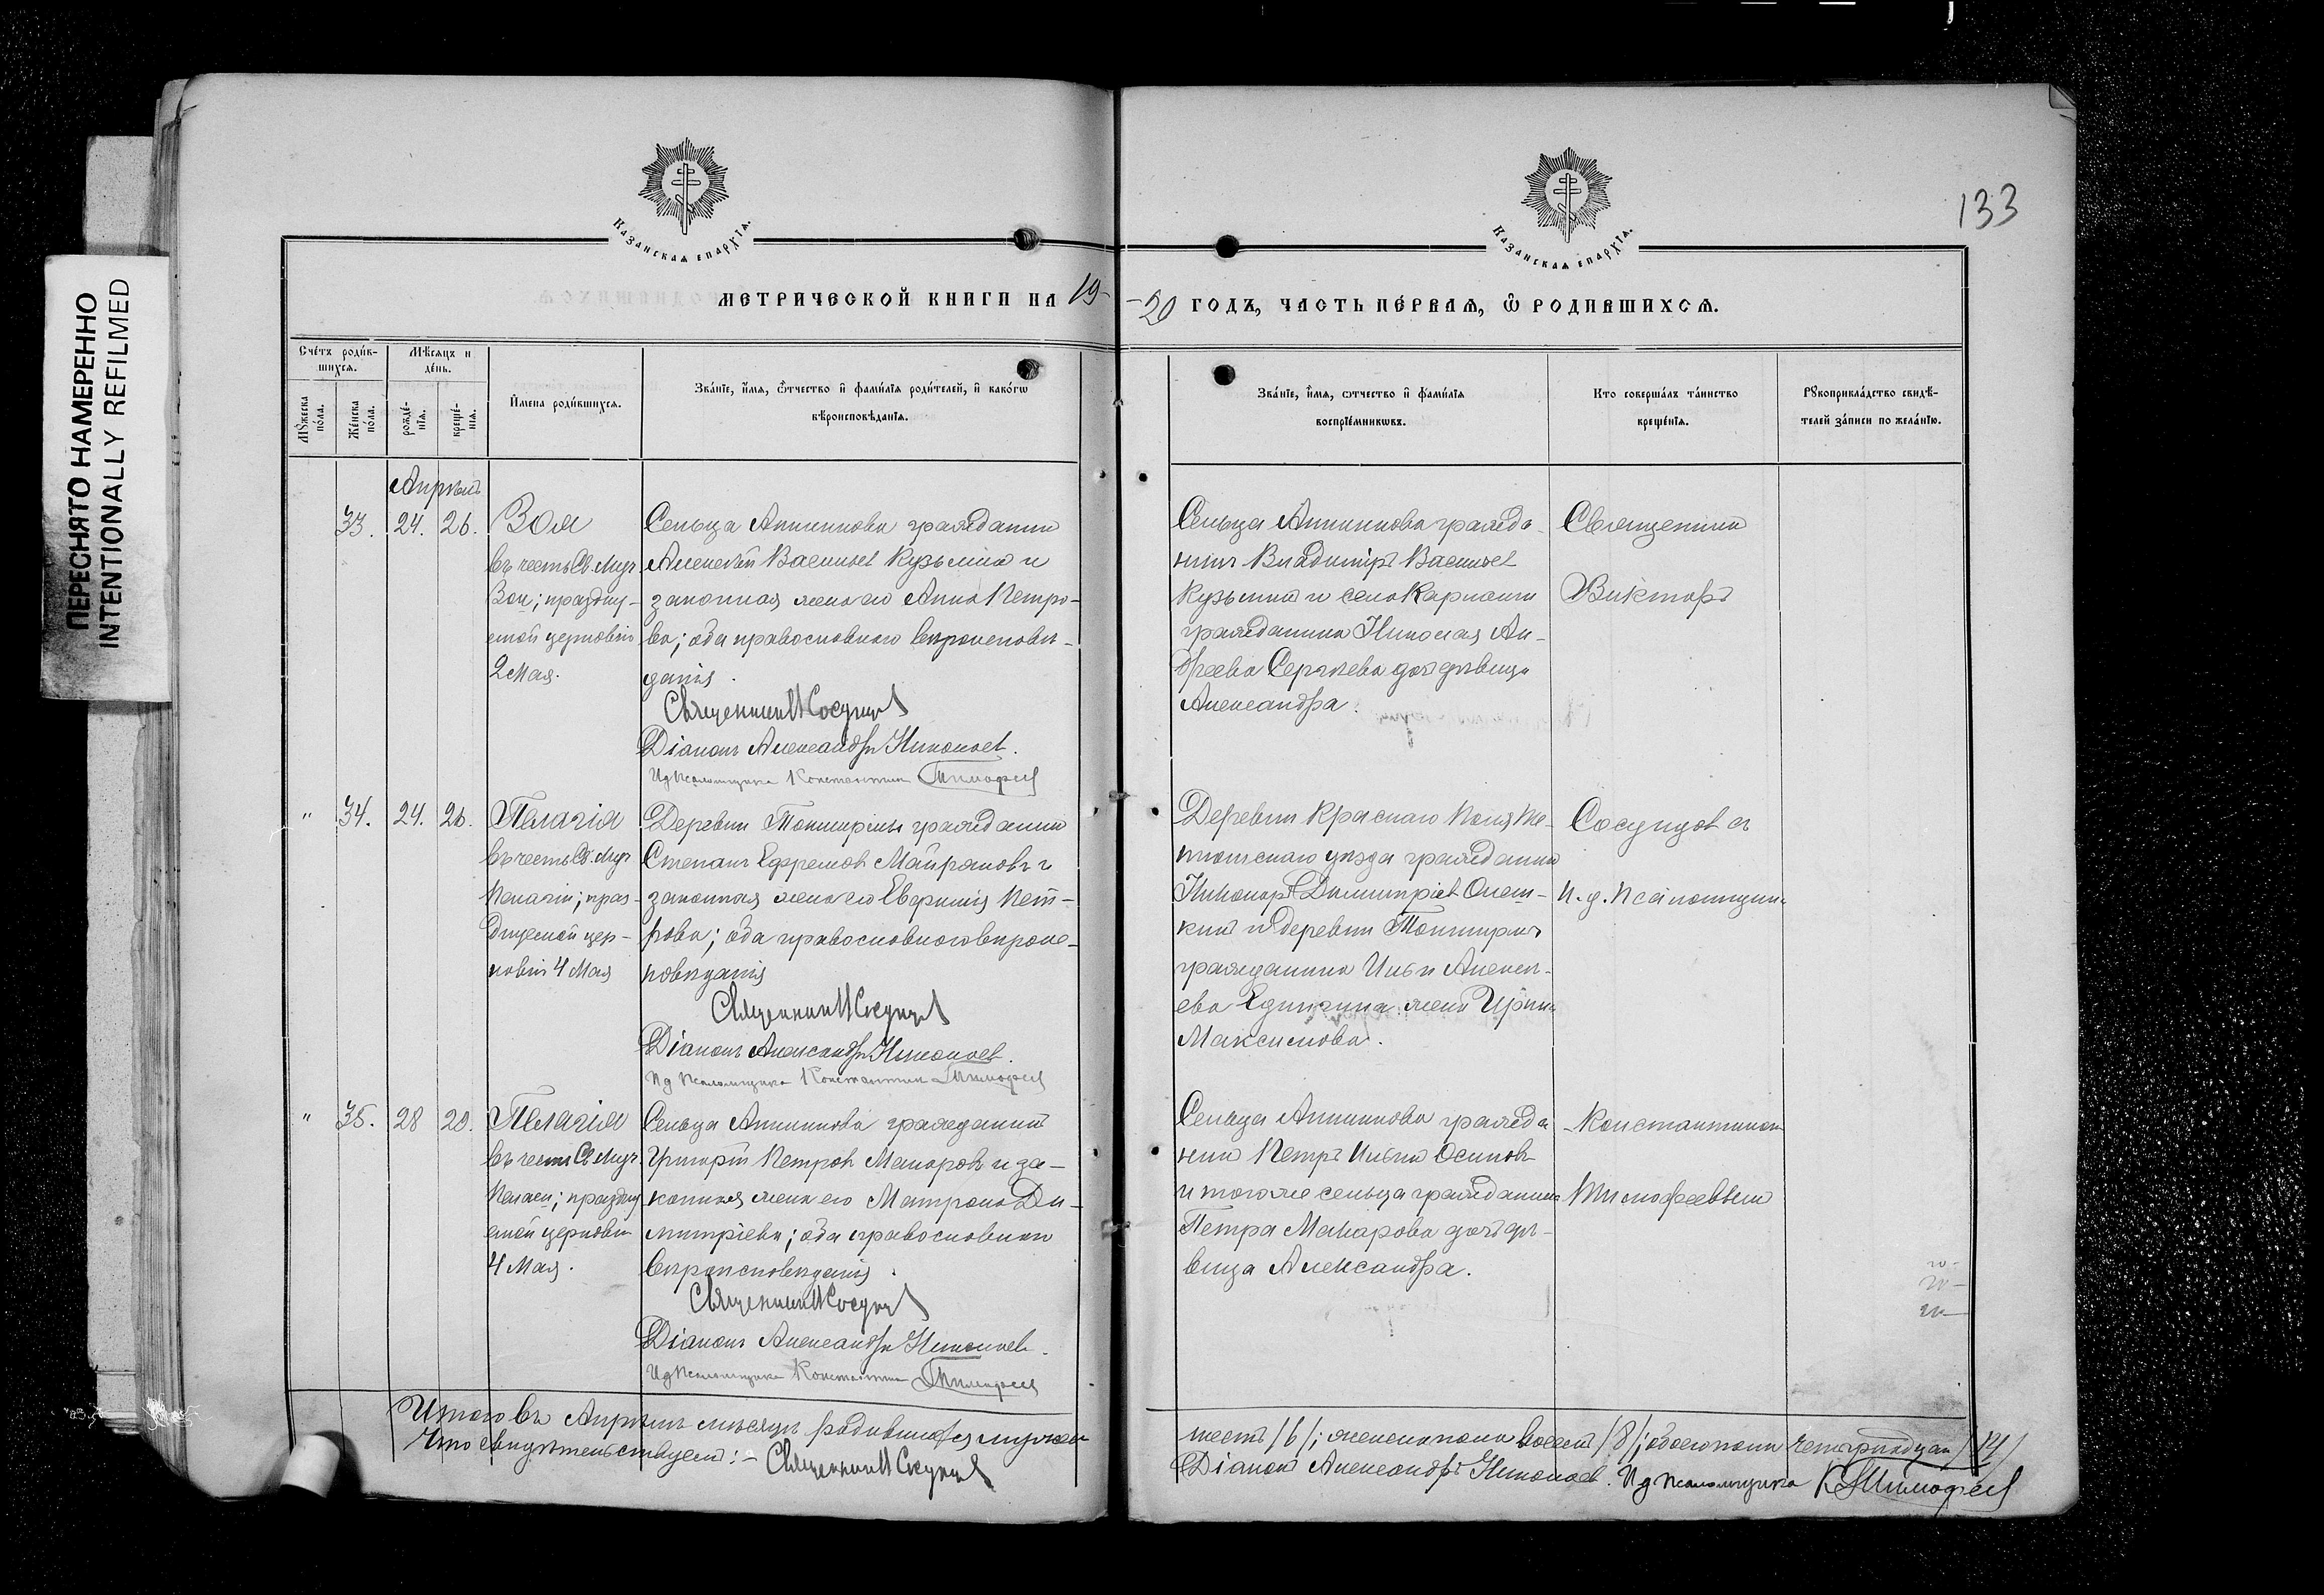 ПЕРЕСНЯТО НАМЕРЕННО
INTENTIONALLY REFILMED
133
Казанская епархїѧ.
Казанская епархїѧ.
МЕТРИЧЕСКОЙ КНИГИ НА 19-
-20 ГОДЪ, ЧАСТЬ ПЕ́РВАѦ, Ѽ РОДИВШИХСѦ.
Сче́тъ роди́в-
шихсѧ.
Мѣ́сяцъ и
де́нь.
Мꙋ́жеска
по́ла.
Же́нска
по́ла.
рожде́-
нїѧ.
креще́-
нїѧ.
И҆мена̀ роди́вшихсѧ.
Зва́нїе, и҆́мѧ, ѻ҆́тчество и҆ фами́лїѧ роди́телей, и҆ како́гѡ
вѣроисповѣ́данїѧ.
Зва́нїе, и҆́мѧ, ѻ҆тчество и҆ фами́лїѧ
воспрїе́мникѡвъ.
Кто соверша́лъ та́инство
креще́нїѧ.
Рꙋкоприкла́дство свидѣ́-
телей за́писи по жела́нїю.
Апрѣль
33. 24. 26. Зоя
въ честь Св. Муч.
Зои; праздну-
емой церковію
2 Мая.
Сельца Аппинкова гражданин
Алексѣй Васильев Кузьмин и
законная жена его Анна Петро-
ва; оба православного вѣроисповѣ-
данія.
Священник В Сосунцов
Діакон Александръ Николаев.
Ид Псаломщика Константин Тимофеев
Сельца Аппинкова гражда-
нин Владимір Васильев
Кузьмин и села Кармалы
гражданина Николая Ан-
дреева Сергѣева дочь дѣвица
Александра.
Священник
Виктор
" 34. 24. 26. Пелагія
въ честь Св. Муч.
Пелагіи; праз-
днуемой цер-
ковію 4 Мая
Деревни гражданин
Степан Ефремов Майраков и
законная жена его Евфимія Пет-
рова; оба православного вѣроис-
повѣданія
Священник В Сосунцов
Діакон Александръ Николаев.
Ид Псаломщика Константин Тимофеев
Деревни Краснаго Поля Те-
тюшскаго уѣзда гражданин
Никонор Димитріев
и деревни
гражданина Ильи Алексѣ-
ева жена Ирина
Максимова.
Сосунцов съ
И. д. Псаломщик
" 35. 28 29. Пелагія
въ честь Св. Муч.
Пелагеи; празdну-
емой церковію
4 Мая.
Сельца Аппинкова гражданин
Григорій Петров Макаров и за-
конная жена его Матрона Ди-
митріева; оба православного
вѣроисповѣданія.
Священник В Сосунцов
Діакон Александръ Николаев.
Ид Псаломщика Константин Тимофеев
Сельца Аппинкова гражда-
нин Петр Ильин Осипов
и тогоже сельца гражданина
Петра Макарова дочь дѣ-
вица Александра.
Константином
Тимофеевым
Итого въ Апрѣлѣ мѣсяцѣ родившихся мужск
шесть /6/; женска пола восемь /8/; обоего пола четырнадцать /14/
Что свидѣтельствуем: - Священник В Сосунцов
Діакон Александръ Николаев. Ид Псаломщика К Тимофеев